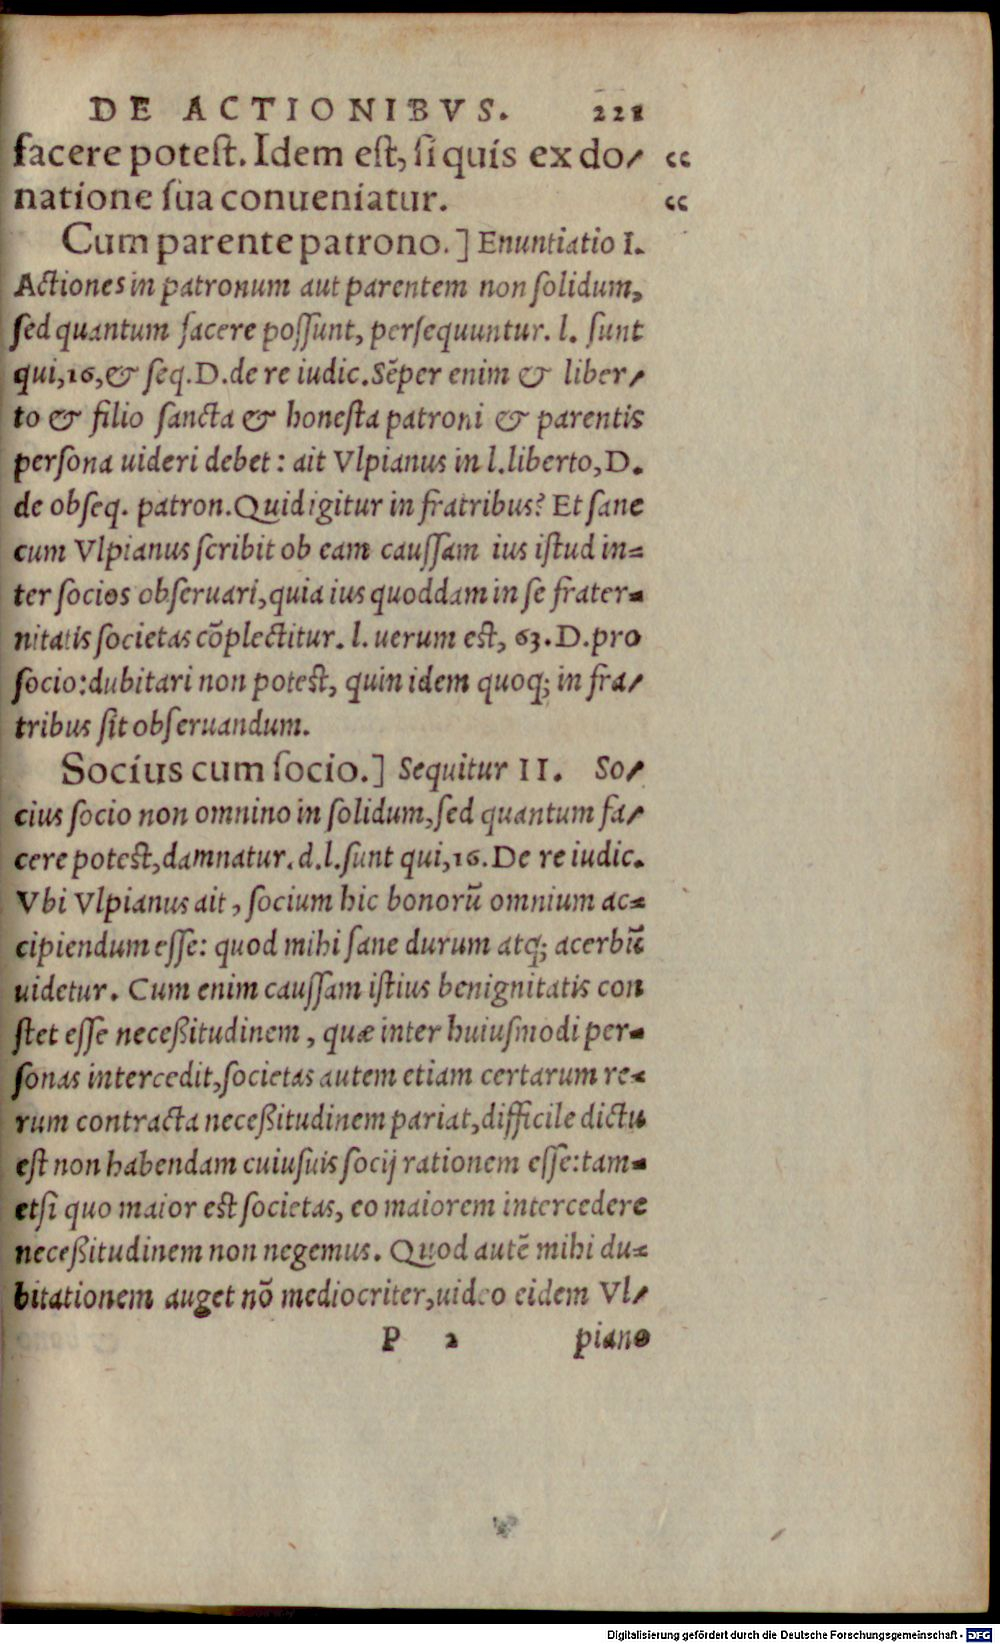 DE ACTIONIBVS. 221
facere potest. Idem est, si quis ex do- “
natione sua conueniatur. “
Cum parente patrono.] Enuntiatio I.
Actiones in patronum aut parentem non solidum,
sed quantum facere possunt, persequuntur. l. sunt
qui, 16, & seq. D. de re iudic. Sēper enim & liber-
to & filio sancta & honesta patroni & parentis
persona uideri debet: ait Vlpianus in l. liberto, D.
de obseq. patron. Quid igitur in fratribus? Et sane
cum Vlpianus scribit ob eam caussam ius istud in-
ter socios obseruari, quia ius quoddam in se frater-
nitatis societas cōplectitur. l. uerum est, 63. D. pro
socio: dubitari non potest, quin idem quoq; in fra-
tribus sit obseruandum.
Socius cum socio.] Sequitur II. So-
cius socio non omnino in solidum, sed quantum fa-
cere potest, damnatur. d. l. sunt qui, 16. De re iudic.
Vbi Vlpianus ait, socium hic bonorū omnium ac-
cipiendum esse: quod mihi sane durum atq; acerbū
uidetur. Cum enim caussam istius benignitatis con
stet esse neceßitudinem, quæ inter huiusmodi per-
sonas intercedit, societas autem etiam certarum re-
rum contracta neceßitudinem pariat, difficile dictu
est non habendam cuiusuis socij rationem esse: tam-
etsi quo maior est societas, eo maiorem intercedere
neceßitudinem non negemus. Quod autē mihi du-
bitationem auget nō mediocriter, uideo eidem Vl-
P 2 piano
Digitalisierung gefördert durch die Deutsche Forschungsgemeinschaft - DFG